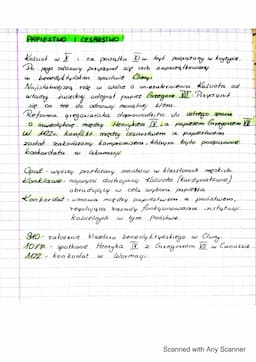 PAPIESTWO I CESARSTWO
Kościół w X i na początku XI w. był pogrążony w kryzysie.
Do jego odnowy przyczynił się ruch zapoczątkowany
w benedyktyńskim opactwie Cluny.
Najistotniejszą rolę w walce o uniezależnienie Kościoła od
władzy świeckiej odegrał papież Grzegorz VII. Przyczynił
się on też do odnowy moralnej kleru.
Reforma gregoriańska doprowadziła do ostrego sporu
o inwestyturę między Henrykiem IV a papieżem Grzegorzem VII
W 1122r. konflikt między cesarstwem a papiestwem
został zakończony kompromisem, którym było podpisanie
konkordatu w Wormacji.
Opat - wyższy przełożony mnichów w klasztorach męskich.
Konklawe - najwyżsi duchowni Kościoła (kardynałowie)
obradujący w celu wyboru papieża
Konkordat - umowa między papiestwem a państwem,
regulująca zasady funkcjonowania instytucji
kościelnych w tym państwie.
910 - założenie klasztoru benedyktyńskiego w Cluny.
1077 - spotkanie Henryka IV z Grzegorzem VII w Canossie.
1122 - konkordat w Wormacji.
Scanned with Any Scanner